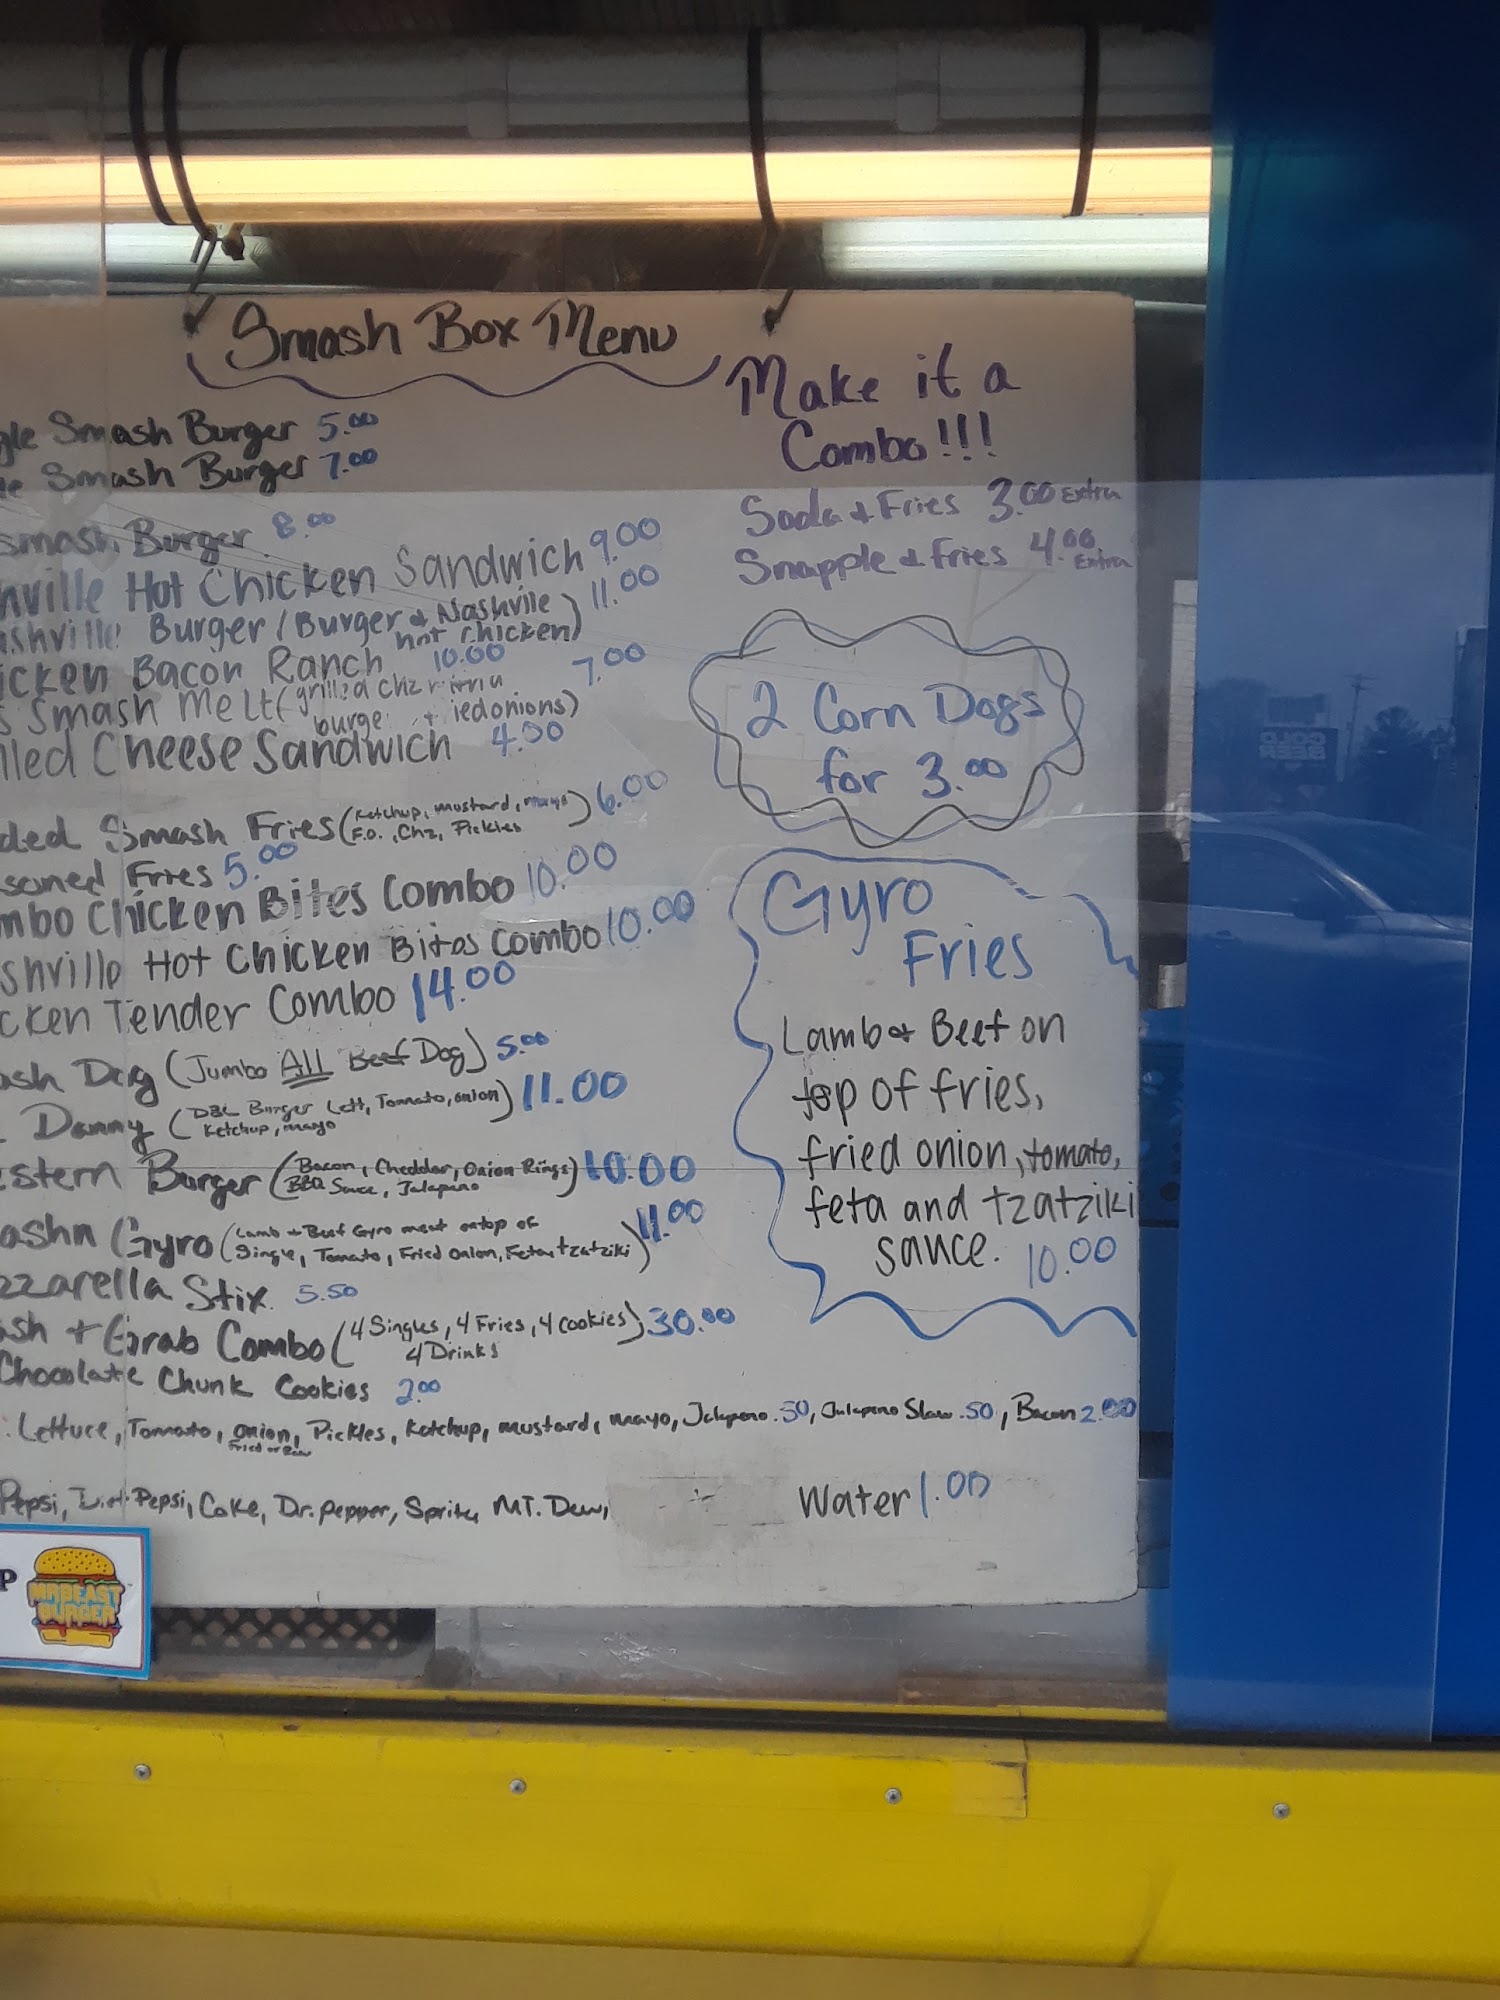 Smash Box Menu
gle Smash Burger 5.00
le Smash Burger 7.00
smash Burger 8.00
hville Hot Chicken Sandwich 9.00
ashville Burger (Burger & Nashville hot chicken) 11.00
icken Bacon Ranch 10.00
s Smash Melt (grilled chz 7.00
burge + iedonions)
lled Cheese Sandwich 4.50
ded Smash Fries (Ketchup, mustard, mayo 6.00
F.O., Chz, Pickles)
soned Fries 5.00
mbo Chicken Bites Combo 10.00
shville Hot Chicken Bites Combo 10.00
cken Tender Combo 14.00
ash Dog (Jumbo All Beef Dog) 5.00
Danny (DBL Burger Lett, Tomato, onion) 11.00
Ketchup, mayo
stern Burger (Bacon, Cheddar, Onion Rings) 10.00
BBQ Sauce, Jalapeno
ashn Gyro (Lamb + Beef Gyro meat ontop of 11.00
Single, Tomato, Fried onion, Feta + tzatziki)
zzarella Stix 5.50
ash + Grab Combo (4 Singles, 4 Fries, 4 cookies) 30.00
4 Drinks
Chocolate Chunk Cookies 2.00
Lettuce, Tomato, onion, Pickles, Ketchup, mustard, mayo, Jalapeno .50, Jalapeno Slaw .50, Bacon 2.00
Fried or Raw
Pepsi, Diet Pepsi, Coke, Dr. pepper, Sprite, MT. Dew,
Water 1.00
Make it a
Combo!!!
Soda & Fries 3.00 Extra
Snapple & Fries 4.00 Extra
2 Corn Dogs
for 3.00
Gyro
Fries
Lamb & Beef on
top of fries,
fried onion, tomato,
feta and tzatziki
sauce. 10.00
P
MRBEAST
BURGER
COLD
BEER